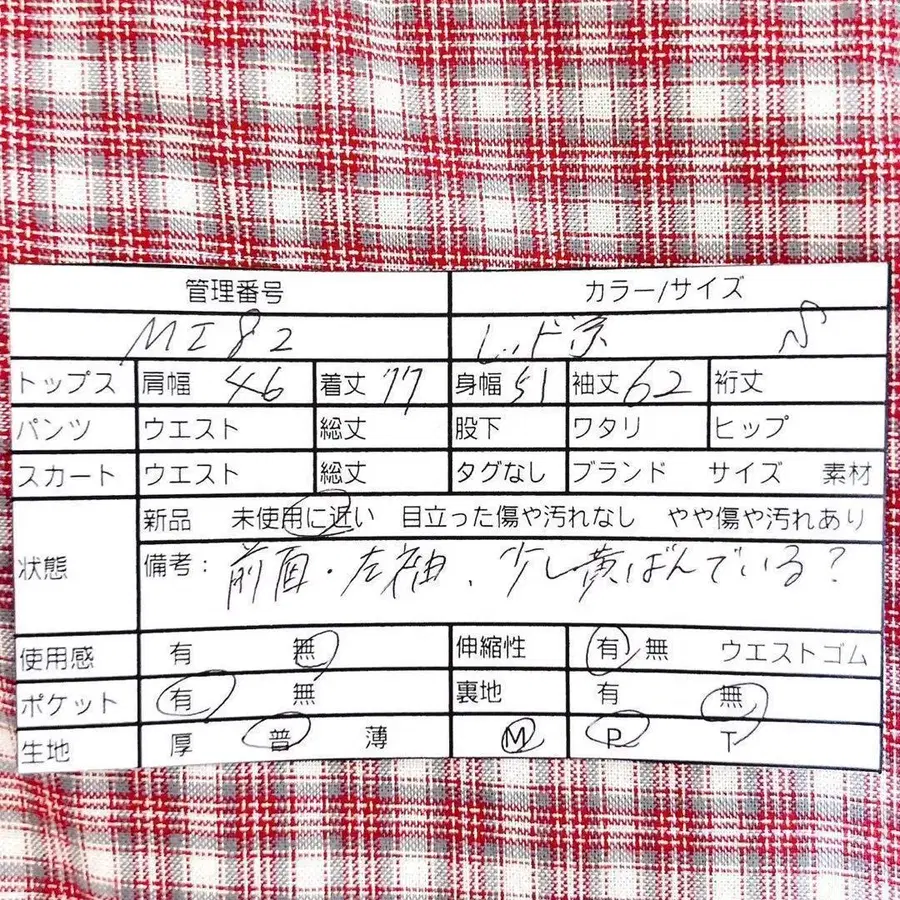 管理番号 カラー/サイズ
MI82 レッド系 S
トップス 肩幅 46 着丈 77 身幅 51 袖丈 62 裄丈
パンツ ウエスト 総丈 股下 ワタリ ヒップ
スカート ウエスト 総丈 タグなし ブランド サイズ 素材
状態 新品 未使用に近い 目立った傷や汚れなし やや傷や汚れあり
備考: 前面・左袖、少し黄ばんでいる?
使用感 有 無 伸縮性 有 無 ウエストゴム
ポケット 有 無 裏地 有 無
生地 厚 普 薄 M P T